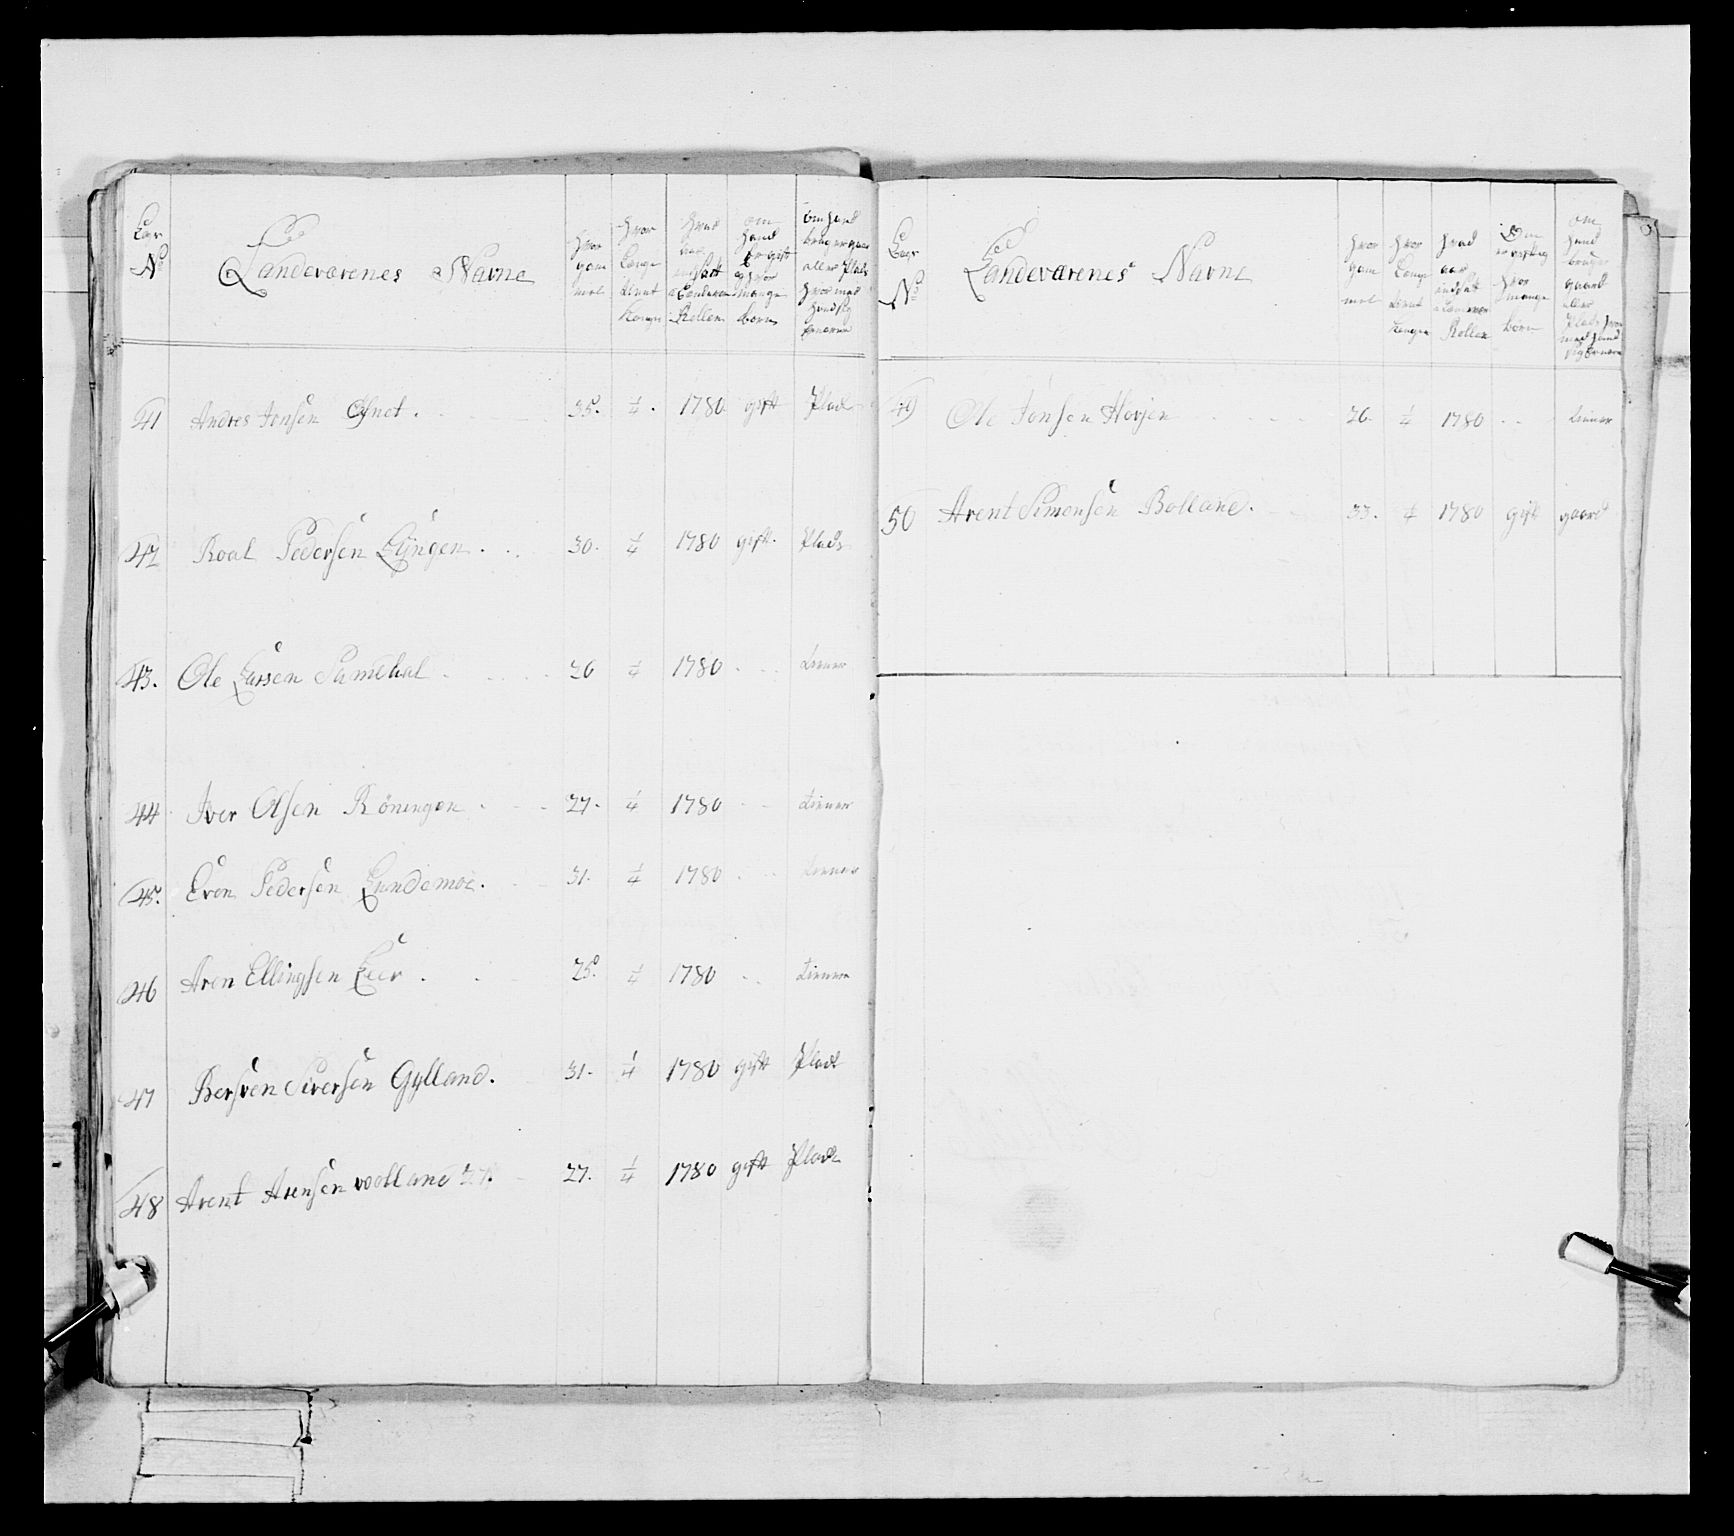 Lægs No
Landeværenes Navne
hvor gam mel
hvor Længe tient Kongen
hvad aar indsatt i Landeværn Rollen
om hand er gift og hvor mange børn
om hand bruger gaar eller Plads hvormed hand sig ernærer
41 Andres Jonsen 35. 1/4. 1780 gift Plads
42 Roal Pedersen Lyngen 30. 1/4 1780 gift. Plads
43. Ole Larsen 26 1/4 1780 tiener
44 Iver Olsen Röningen 27. 1/4 1780 tiener
45. Even Pedersen Lundemoe. 31. 1/4 1780 tiener
46 Aren Ellingsen Leer 25. 1/4 1780 tiener
47 Bersven Siversen Gylland. 31. 1/4 1780 gift Plads
48 Arent Arensen wolland 27. 27. 1/4 1780 gift Plads
Lægs No
Landeværenes Navne
hvor gam mel
hvor Længe tient Kongen
hvad aar indsat i Landeværn Rollen
Om hvor mange börn
om hand bruger gaard eller Plads hvor med hand sig ernærer
49 Ole Jonsen Horjen 26. 1/4 1780 tiener
50 Arent Simonsen Bolland. 33. 1/4 1780 gift gaard